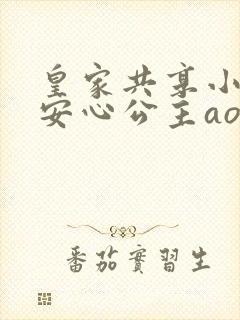 皇家共享小
安心公主ao
番茄實習生